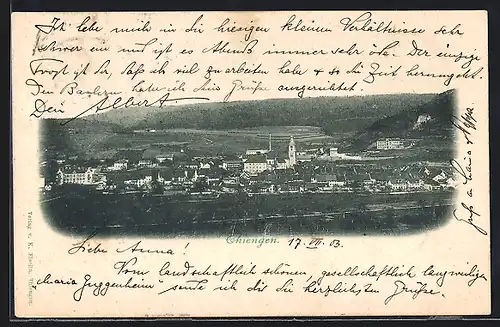 Ich lebe mich in die hiesigen kleinen Verhältnisse sehr
schwer ein und ist es Abends immer sehr öde. Der einzige
Trost ist der, daß ich viel zu arbeiten habe & so die Zeit herumgeht.
Den habe ich Grüße ausgerichtet.
Dein Albert
Gruß a.
Thiengen. 17. VII. 03
Liebe Anna!
Vom landschaftlich schönen, gesellschaftlich langweiligen
"Maria Guggenheim" sende ich dir die herzlichsten Grüße.
Verlag v. K.